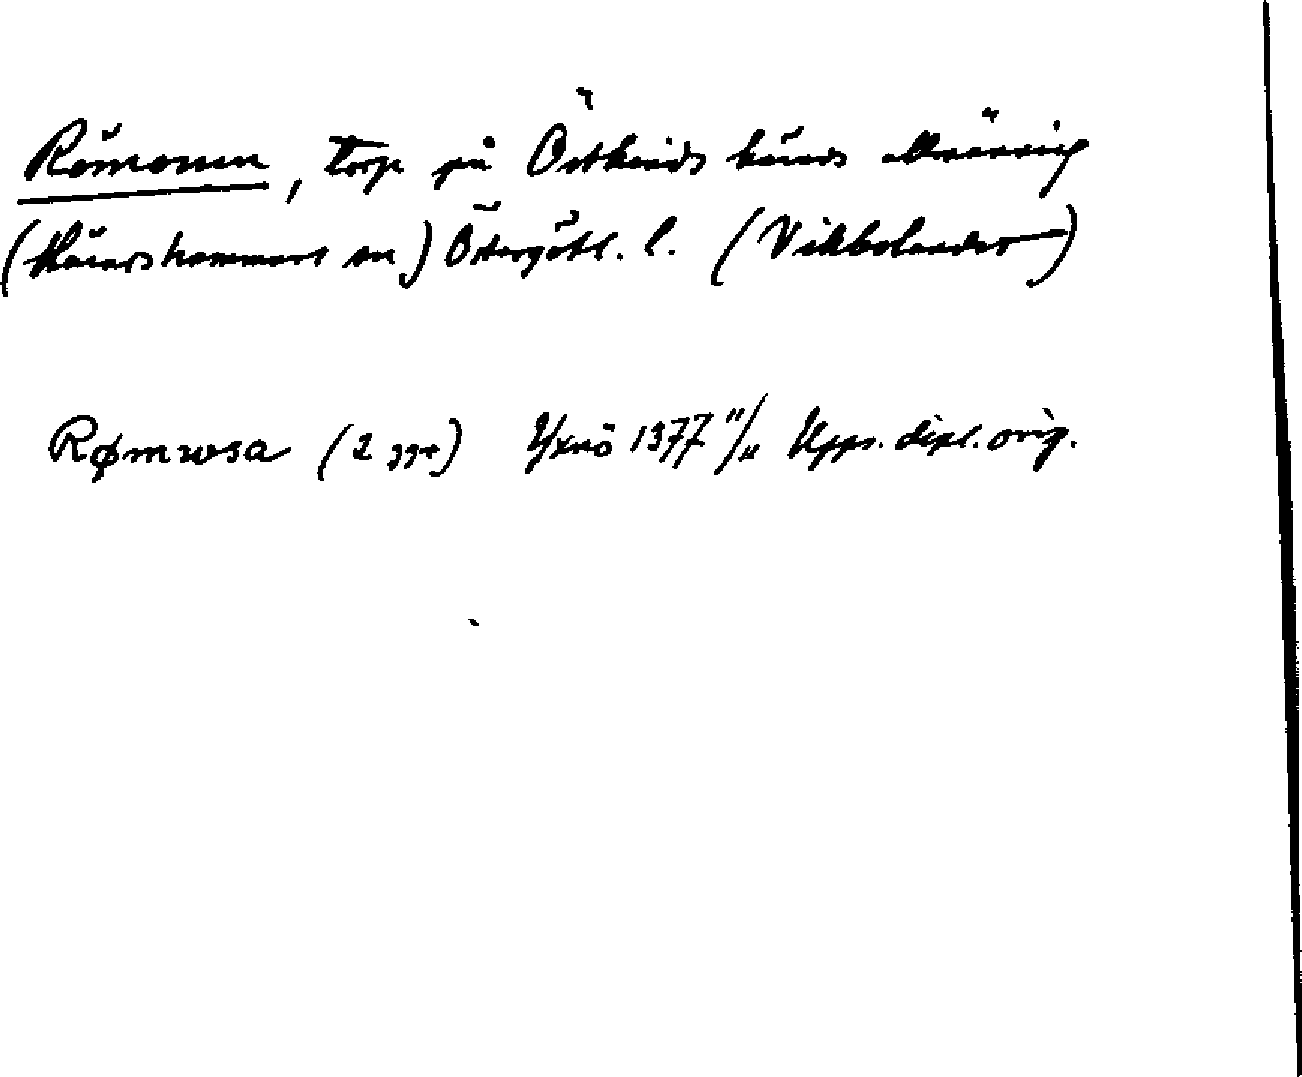 Römossen, torp på Östkinds härads allmänning
(Häradshammars sn) Östergötl. l. (Vikbolandet)
Rømwsa (2 ggr) Yxnö 1377 11/11 Upps. dipl. orig.